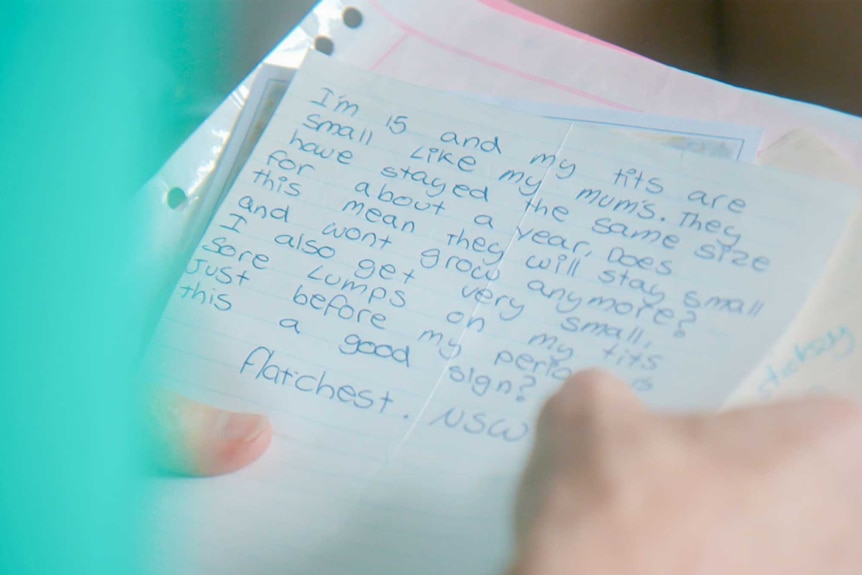 I'm 15 and my tits are
small like my mum's. They
have stayed the same size
for about a year. Does
this mean they will stay small
and wont grow anymore?
I also get very small,
sore lumps on my tits
just before my
this a good sign?
Flatchest. NSW